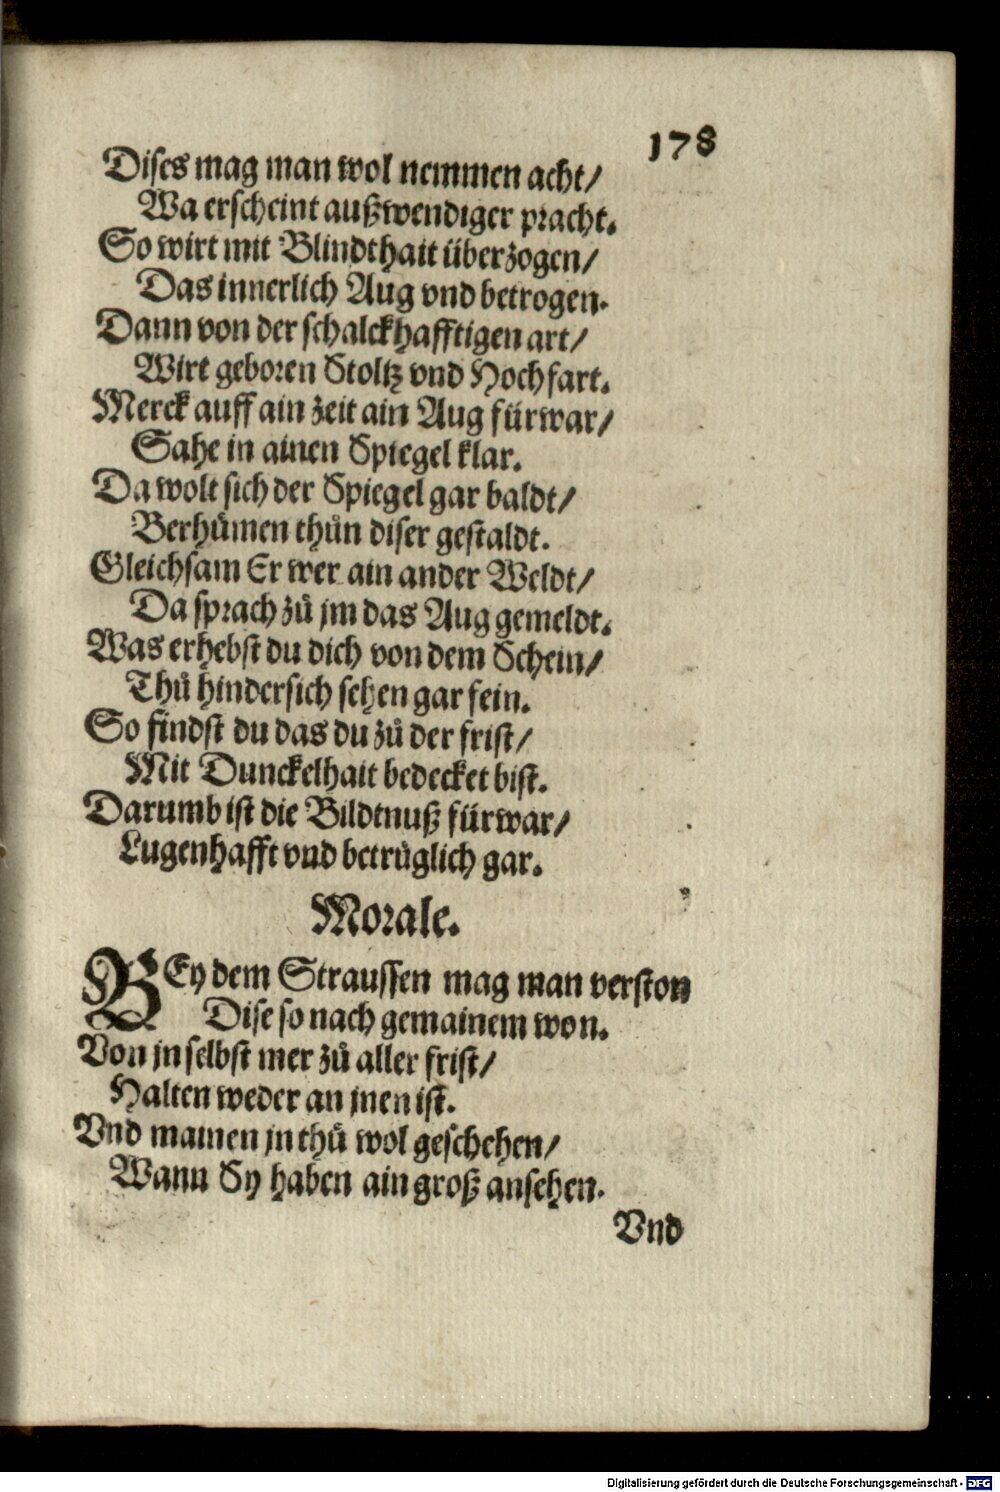 178
Dises mag man wol nemmen acht/
Wa erscheint außwendiger pracht.
So wirt mit Blindthait überzogen/
Das innerlich Aug vnd betrogen.
Dann von der schalckhafftigen art/
Wirt geboren Stoltz vnd Hochfart.
Merck auff ain zeit ain Aug fürwar/
Sahe in ainen Spiegel klar.
Da wolt sich der Spiegel gar baldt/
Berhümen thůn diser gestaldt.
Gleichsam Er wer ain ander Weldt/
Da sprach zů jm das Aug gemeldt.
Was erhebst du dich von dem Schein/
Thů hindersich sehen gar fein.
So findst du das du zů der frist/
Mit Dunckelhait bedecket bist.
Darumb ist die Bildtnuß fürwar/
Lugenhafft vnd betrüglich gar.
Morale.
BEy dem Straussen mag man verston
Dise so nach gemainem won.
Von jn selbst mer zů aller frist/
Halten weder an jnen ist.
Vnd mainen jn thů wol geschehen/
Wann Sy haben ain groß ansehen.
Vnd
Digitalisierung gefördert durch die Deutsche Forschungsgemeinschaft - DFG